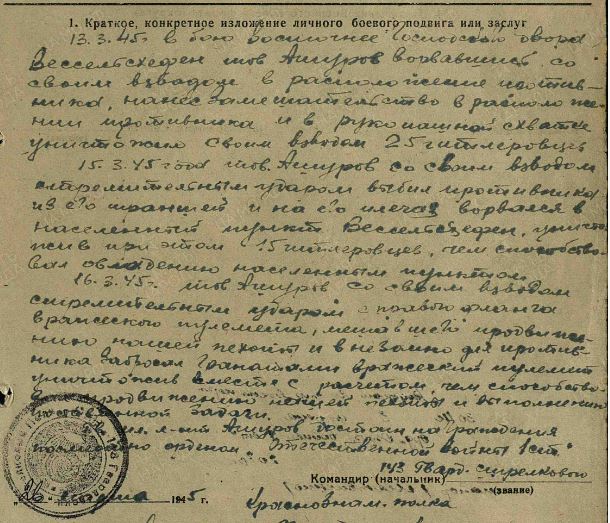 1. Краткое, конкретное изложение личного боевого подвига или заслуг
13.3.45г. в бою восточнее Господский двора
Вессельсхефен тов Ашуров ворвавшись со
своим взводом в расположение против-
ника, нанес замешательство в расположе-
нии противника и в рукопашной схватке
уничтожил своим взводом 25 гитлеровцев
15.3.45 года тов. Ашуров со своим взводом
стремительным ударом выбил противника
из его траншей и на его плечах ворвался в
населенный пункт Вессельсхефен, уничто
жив при этом 15 гитлеровцев, чем способство-
вал овладению населенным пунктом
16.3.45г. тов Ашуров со своим взводом
стремительным ударом с левого фланга
вражеского пулемета, мешавшего продвиже-
нию нашей пехоты и внезапно для против-
ника забросал гранатами вражеский пулемет
уничтожив вместе с расчетом, чем способство
продвижению нашей пехоты и выполнению
задачи.
л-нт Ашуров достоин награждения
орденом "Отечественной войны 1 ст"
143 Гвард. стрелкового
Командир (начальник)
(звание)
"26" марта 1945 г.
Краснознам. полка